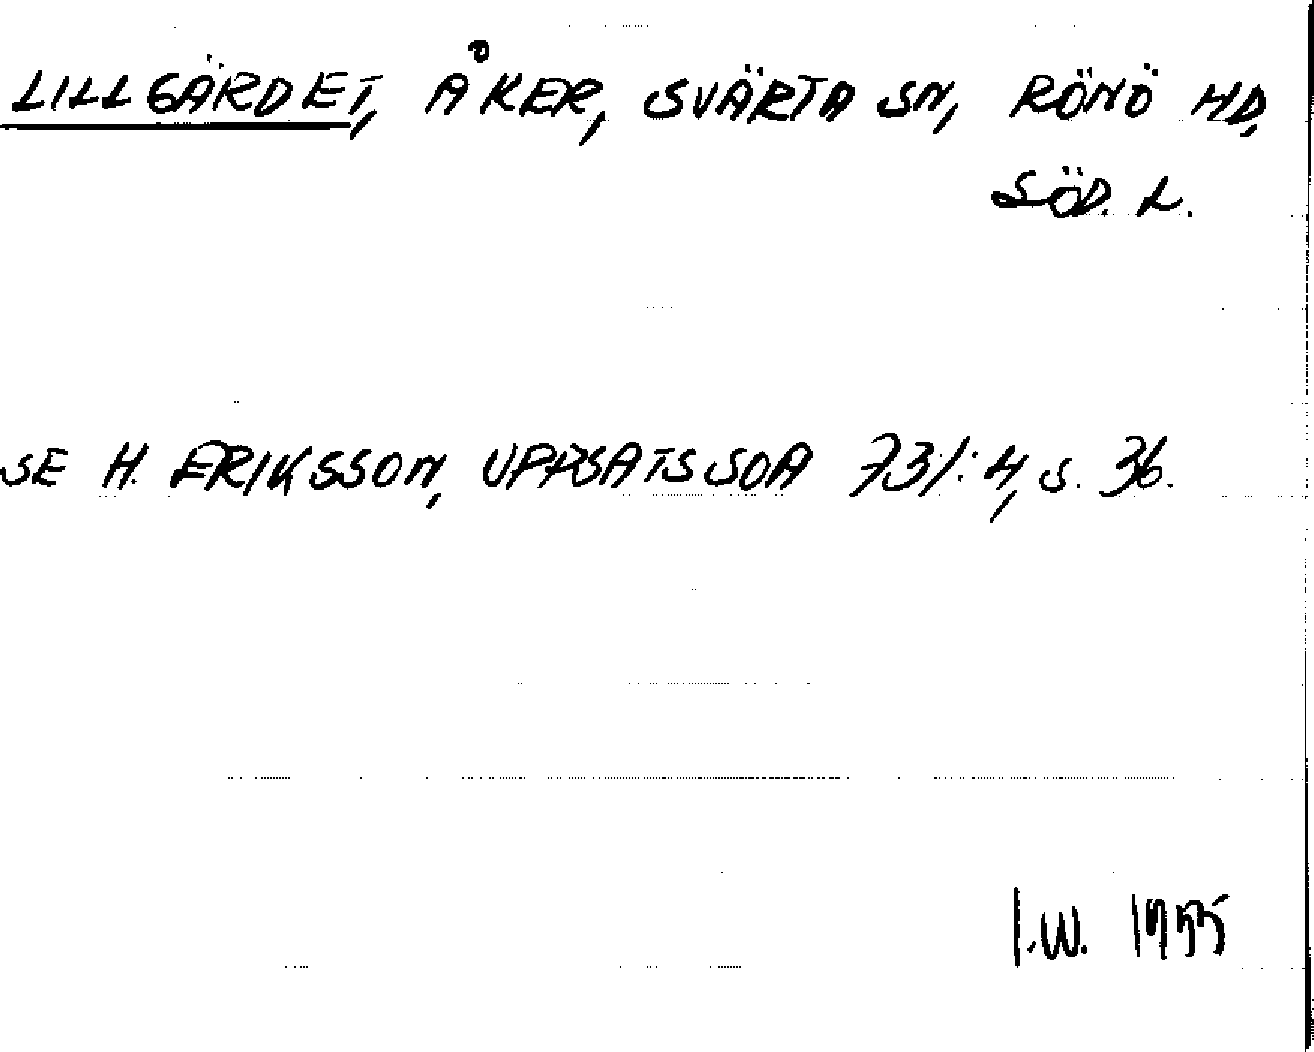 LILLGÄRDET, ÅKER, SVÄRTA SN, RÖNÖ HD,
SÖD. L.
SE H. ERIKSSON, UPPSATS SOA 73/:4, S. 36.
I.W. 1975